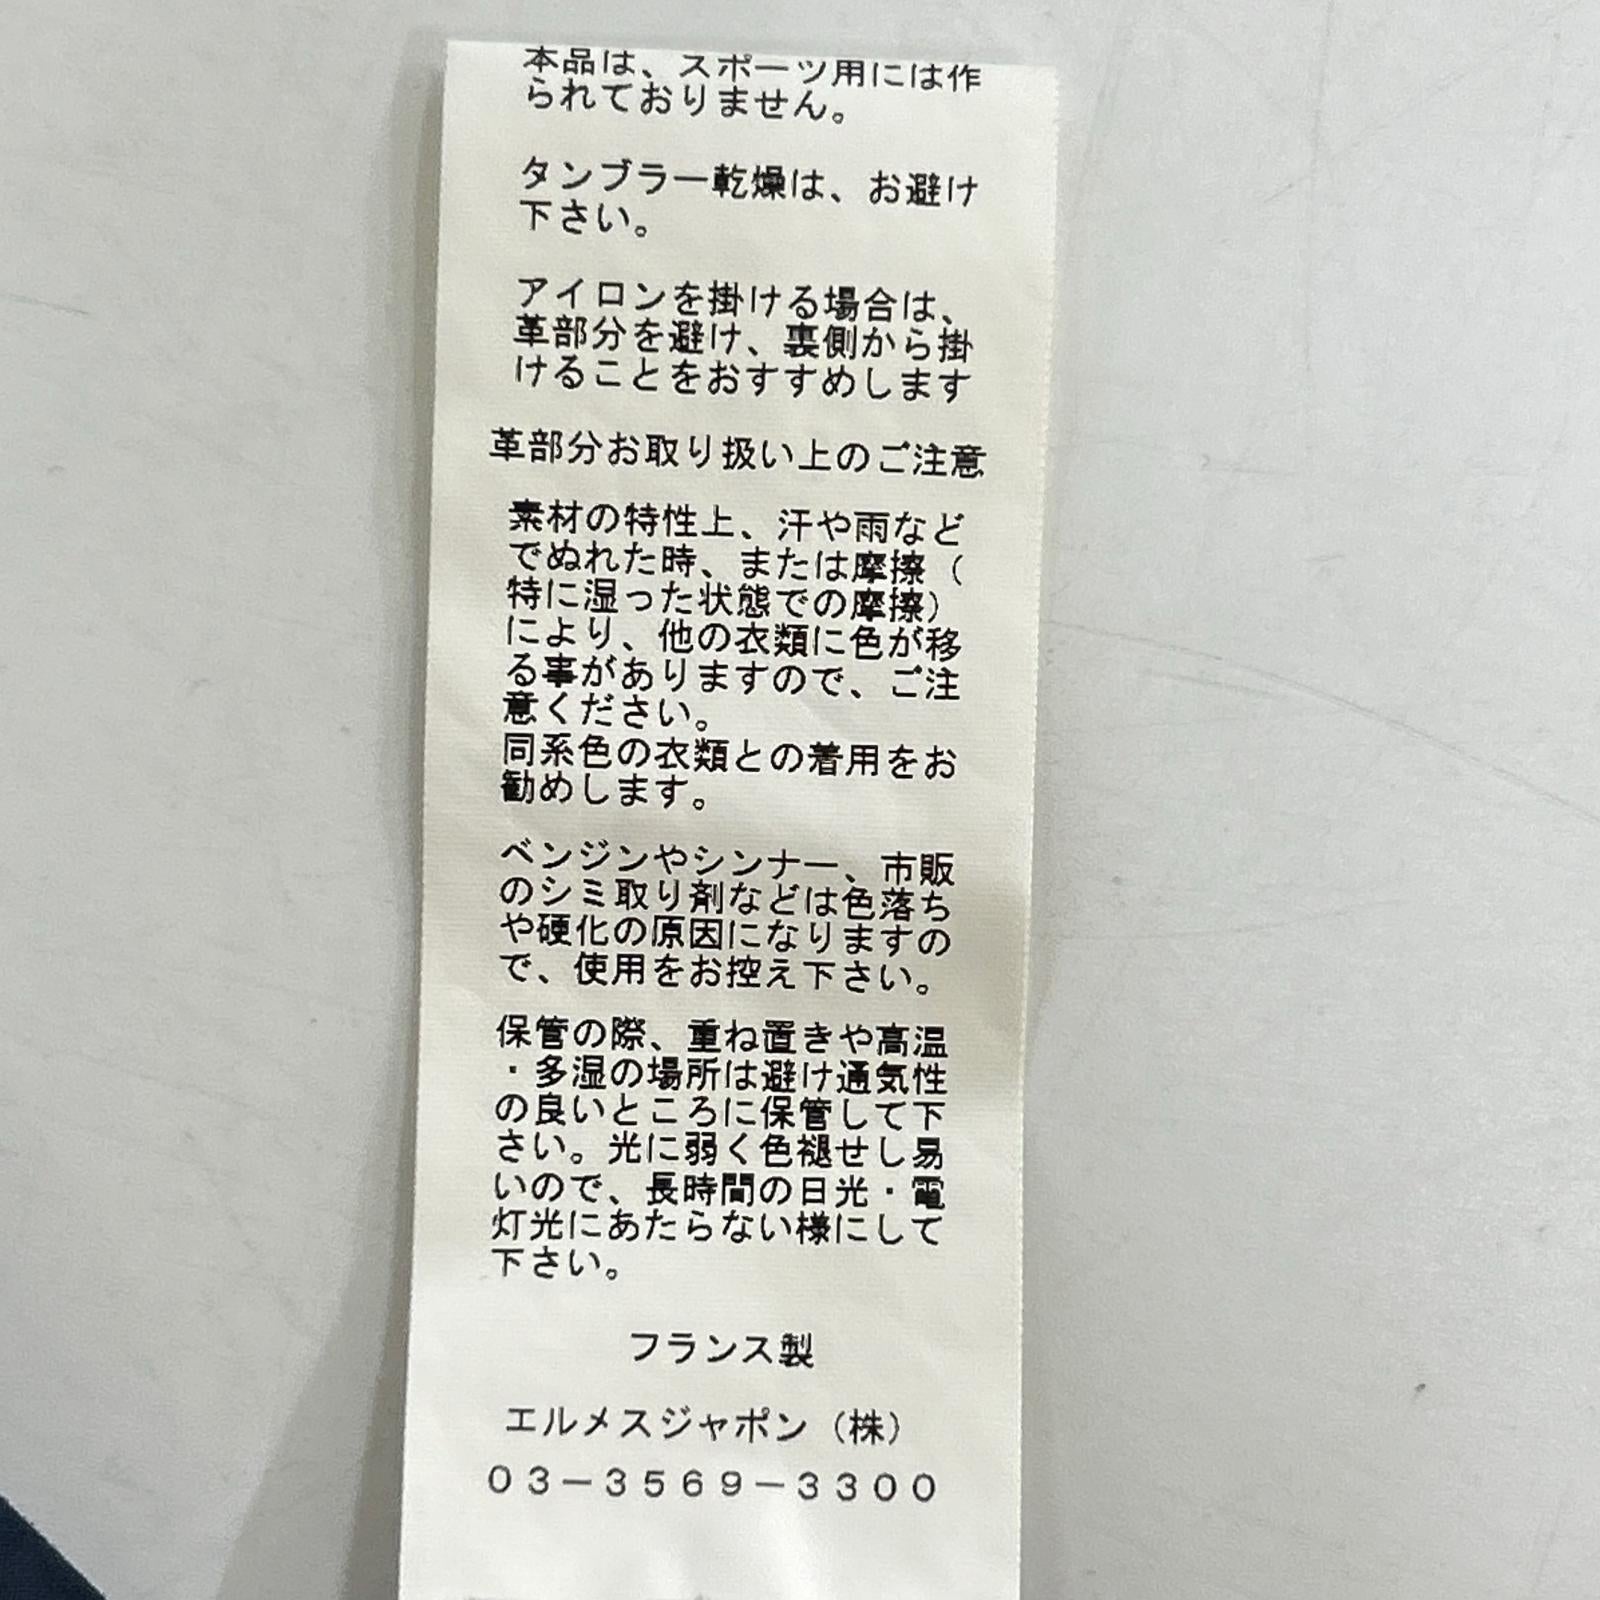 本品は、スポーツ用には作
られておりません。
タンブラー乾燥は、お避け
下さい。
アイロンを掛ける場合は、
革部分を避け、裏側から掛
けることをおすすめします
革部分お取り扱い上のご注意
素材の特性上、汗や雨など
でぬれた時、または摩擦（
特に湿った状態での摩擦）
により、他の衣類に色が移
る事がありますので、ご注
意ください。
同系色の衣類との着用をお
勧めします。
ベンジンやシンナー、市販
のシミ取り剤などは色落ち
や硬化の原因になりますの
で、使用をお控え下さい。
保管の際、重ね置きや高温
・多湿の場所は避け通気性
の良いところに保管して下
さい。光に弱く色褪せし易
いので、長時間の日光・電
灯光にあたらない様にして
下さい。
フランス製
エルメスジャポン（株）
０３－３５６９－３３００